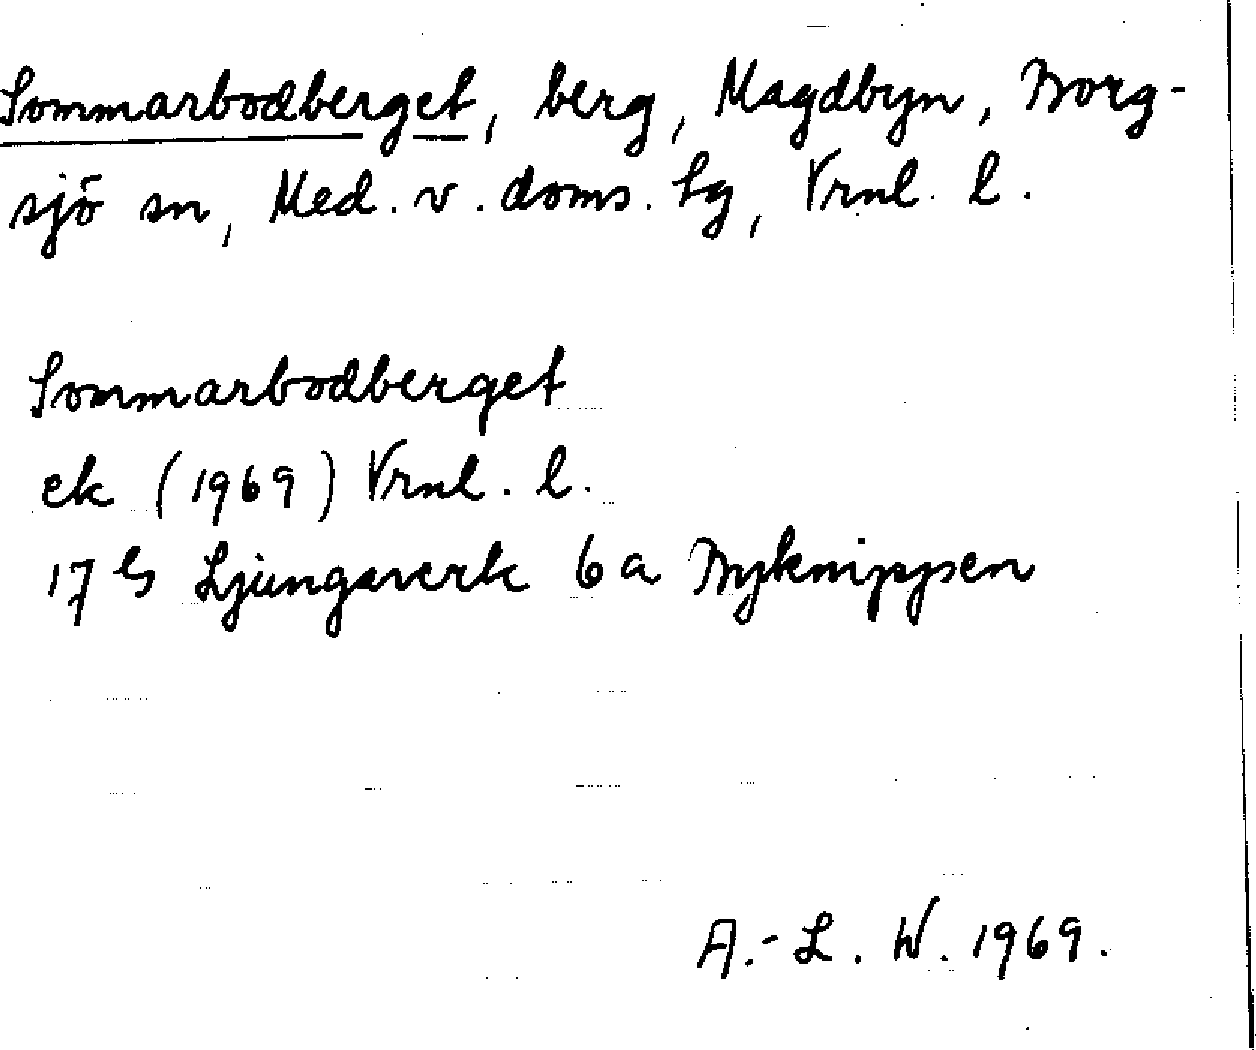 Sommarbodberget, berg, Magdbyn, Borg-
sjö sn, Med. v. doms. tg, Vrnl. l.
Sommarbodberget
ek (1969) Vrnl. l.
17 G Ljungaverk 6 a Byknippen
A.-L. W. 1969.